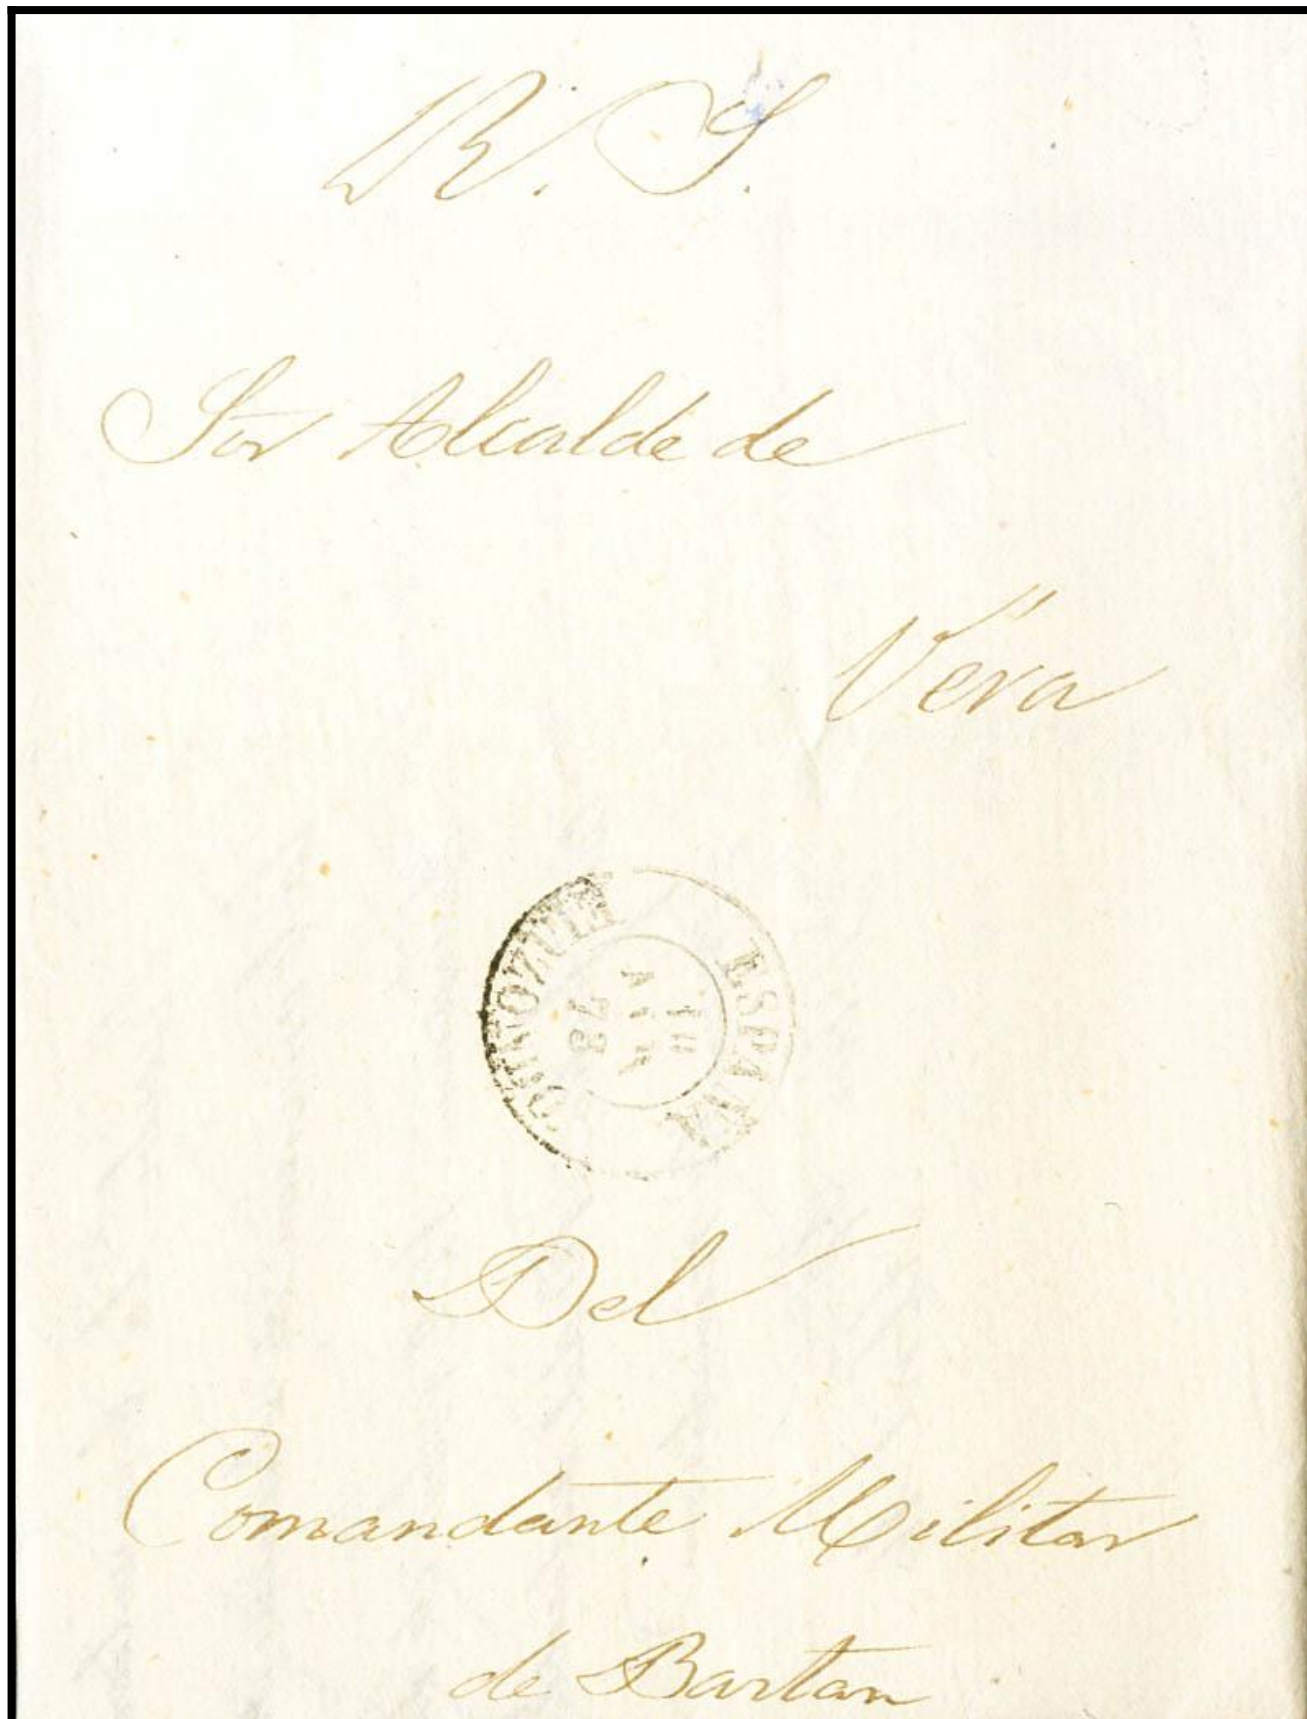 R. S.
Sor Alcalde de
Vera
ESPAÑA
18
73
Del
Comandante Militar
de Bartan